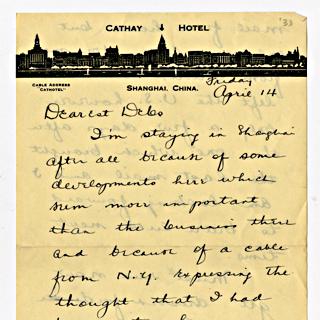 '33
CATHAY HOTEL
CABLE ADDRESS
"CATHOTEL"
SHANGHAI, CHINA.
Friday
April 14
Dearest
I'm staying in Shanghai
after all because of some
developments here which
seem more important
than the business there
and because of a cable
from N.Y. expressing the
thought that I had